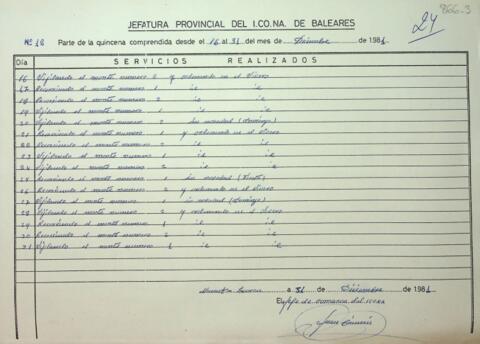 866.3
JEFATURA PROVINCIAL DEL I.CO.NA. DE BALEARES
24
Nº 18 Parte de la quincena comprendida desde el 16 al 31 del mes de Diciembre de 1981
Día SERVICIOS REALIZADOS
16 Vigilando el monte numero 2 y ordenanto en el vivero
17 Recorriendo el monte numero 1 id
18 Recorriendo el monte numero 2 id
19 Vijilando el monte numero 1 id
20 Vijilando el monte numero 2 Sin novedad (Domingo)
21 Recorriendo el monte numero 1 y ordenanto en el vivero
22 Recorriendo el monte numero 2 id
23 Vijilando el monte numero 1 id
24 Vijilando el monte numero 2 id
25 Recorriendo el monte numero 1 Sin novedad
26 Recorriendo el monte numero 2 y ordenanto en el vivero
27 Vijilando el monte numero 1 sin novedad (Domingo)
28 Vijilando el monte numero 2 y ordenanto en el vivero
29 Recorriendo el monte numero 1 id
30 Recorriendo el monte numero 2 id
31 Vijilando el monte numero 1 id
a 31 de Diciembre de 1981
El Jefe de comarca del ICONA